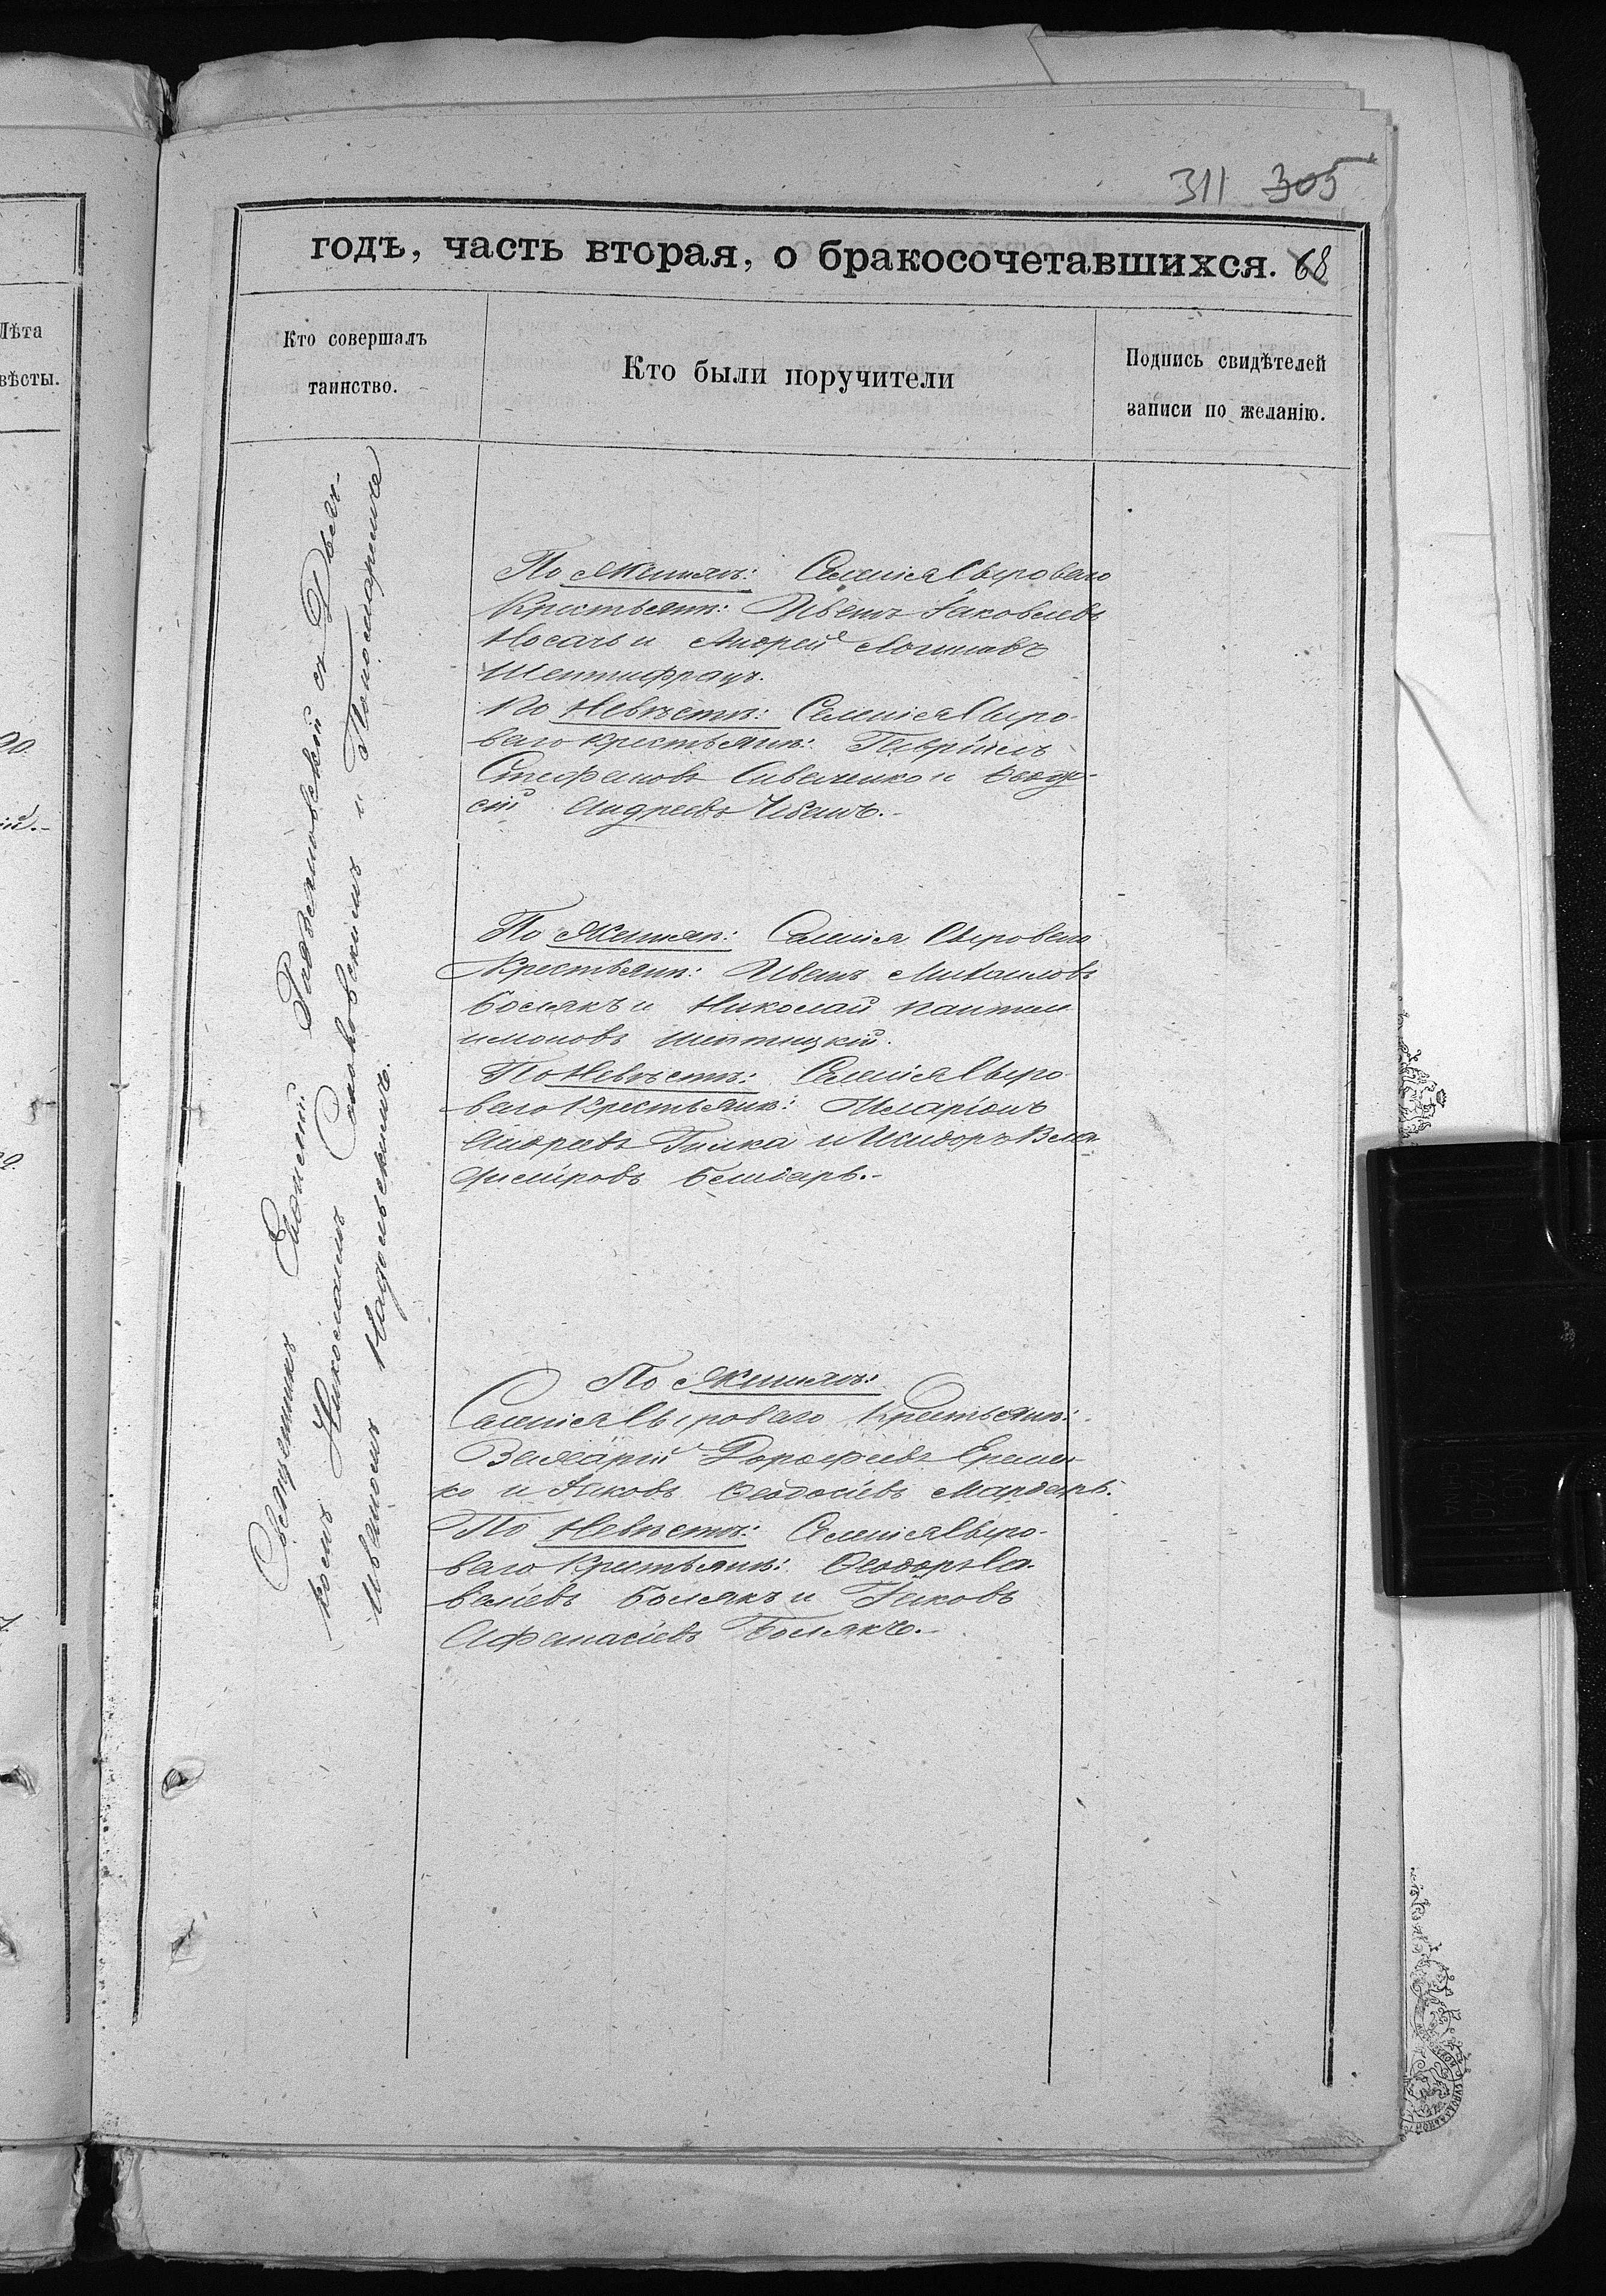 311 305
годъ, часть вторая, о бракосочетавшихся. 68
Лѣта
вѣсты.
Кто совершалъ
таинство.
Кто были поручители
Подпись свидѣтелей
записи по желанію.
Священникъ Евгеній съ Дьяч-
комъ Николаемъ Саковскимъ и Пономаремъ
Иваномъ Надольскимъ.
По Женихѣ: Селенія Сырового
Крестьяне: Иванъ Іаковлевъ
Носачъ и Андрей Логиновъ
По Невѣстѣ: Селенія Сыро-
ваго крестьяне: Гавріилъ
Стефановъ Савченко и Ѳеодо-
сій Андреевъ Чебанъ.-
По Женихѣ: Селенія Сырового
Крестьяне: Иванъ Михаиловъ
Болякъ и Николай Пантеле
имоновъ Шептицкій.
По Невѣстѣ: Селенія Сыро-
ваго Крестьяне: Иларіонъ
Андреевъ Гилка и Исидоръ Вла-
диміровъ Бондарь.-
По Женихѣ:
Селенія Сырового Крестьяне:
Захарій Дорофеевъ Еремен-
ко и Іаковъ Ѳеодосіевъ Мардарь.
По Невѣстѣ: Селенія Сыро-
ваго Крестьяне: Ѳеодоръ Са-
веліевъ Болякъ и Іаковъ
Афанасіевъ Болякъ.-